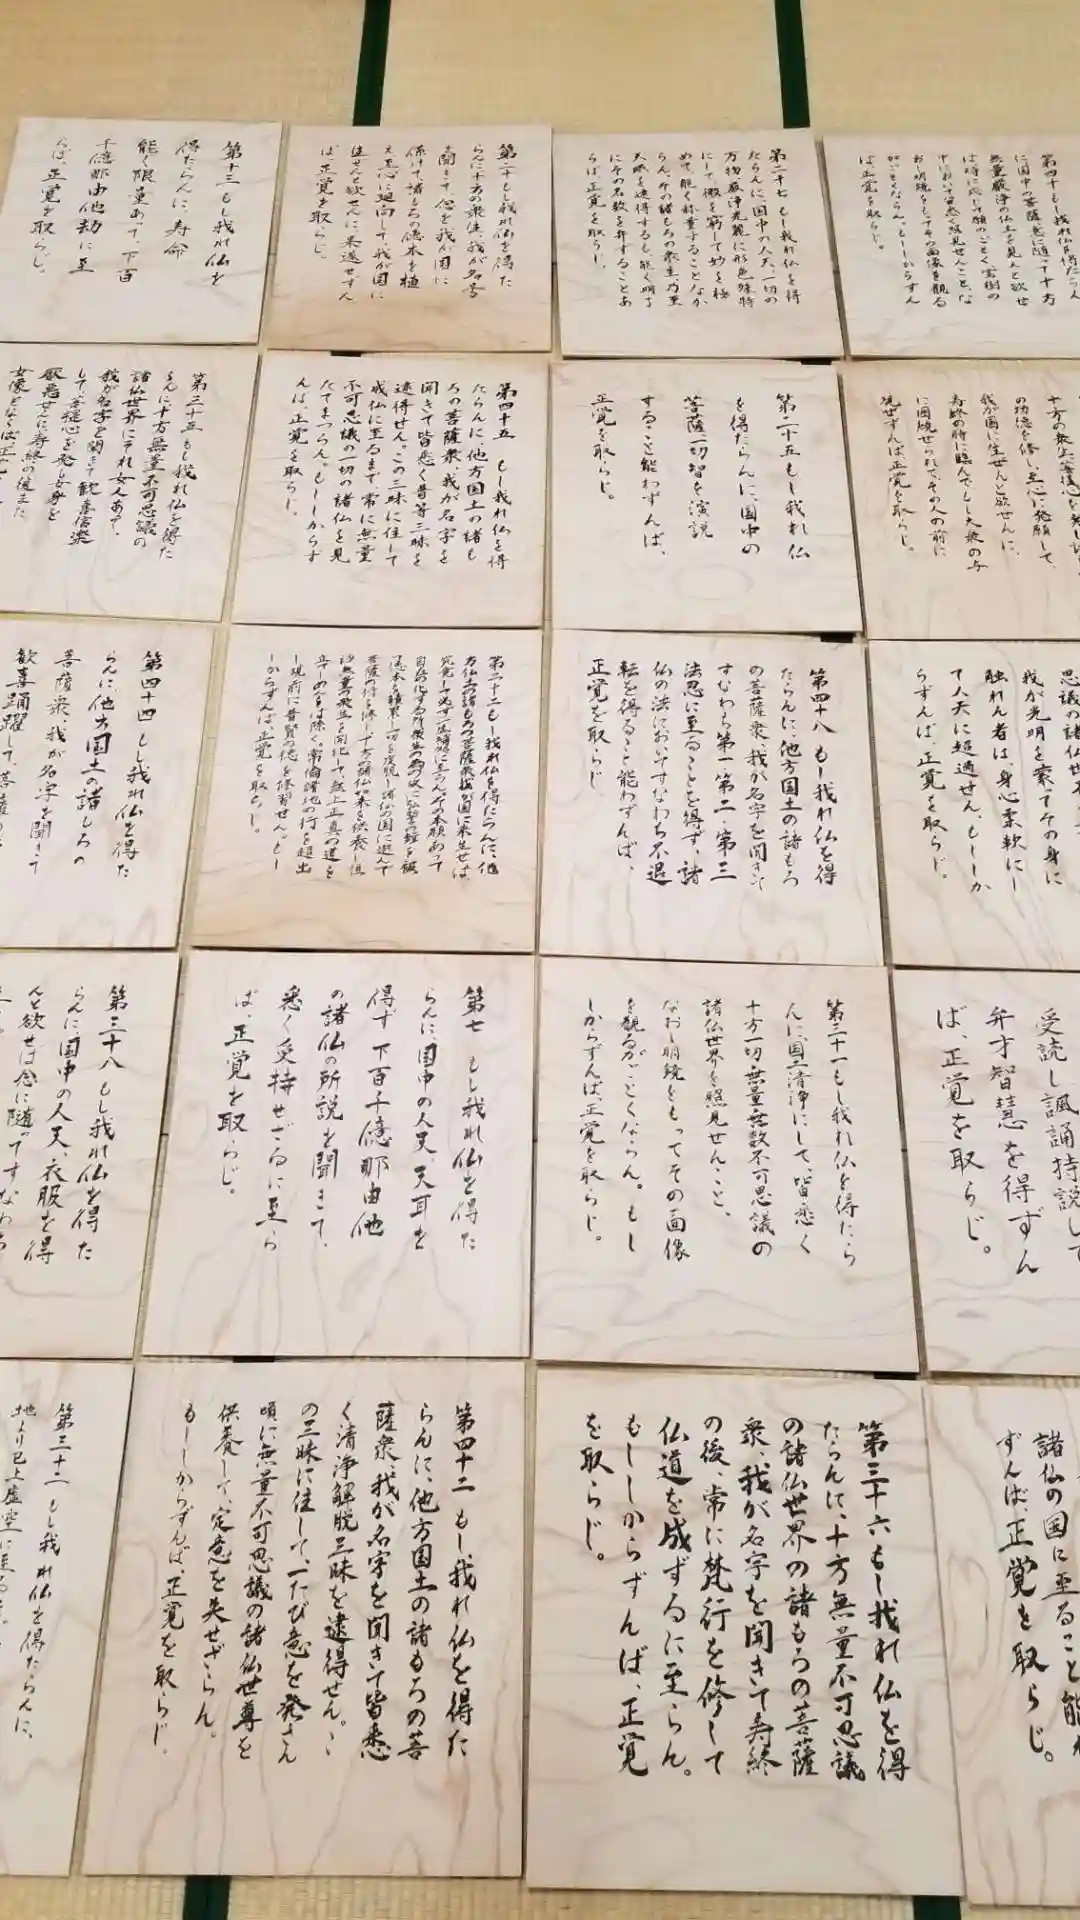 第十三 もし我れ仏を
得たらんに、寿命
能く限量あって、下百
千億那由他劫に至
らば、正覚を取らじ。
第二十 もし我れ仏を得た
らんに十方の衆生、我が名号
を聞きて、念を我が国に
係けて、諸もろの徳本を植
え至心に廻向して、我が国に
生ぜんと欲せんに果遂せずん
ば、正覚を取らじ。
第二十七 もし我れ仏を得
たらんに国中の人天、一切の
万物厳浄光麗に形色殊特
にして、微を窮して妙を極
めて、能く称量することなか
らん。その諸もろの衆生、乃至
天眼を逮得するも、能く明了
にその名数を弁ずることあ
らば、正覚を取らじ。
第四十 もし我れ仏を得たらん
に国中の菩薩意に随って十方
無量厳浄の仏土を見んと欲せ
は時に応じて願のごとく、宝樹の
中において皆悉く照見せんこと、な
お明鏡をもってその面像を覩る
がごとくならん。もししからずん
ば、正覚を取らじ。
第三十五 もし我れ仏を得た
らんに十方無量不可思議の
諸仏世界にそれ女人あて、
我が名字を聞きて歓喜信楽
して菩提心を発し女身を
厭悪せんに寿終の後また
女像とならば正覚
第四十五 もし我れ仏を得
たらんに、他方国土の諸も
ろの菩薩衆、我が名字を
聞きて皆悉く普等三昧を
逮得せん。この三昧に住して
成仏に至るまで、常に無量
不可思議の一切の諸仏を見
たてまつらん。もししからず
んば、正覚を取らじ。
第二十五 もし我れ仏
を得たらんに、国中の
菩薩一切智を演説
すること能わずんば、
正覚を取らじ。
十方の衆生菩提心を発し
の功徳を修し至心に発願して、
我が国に生ぜんと欲せんに、
寿終の時に臨んでもし大衆の与
に囲繞せられて、その人の前に
現ぜずんば正覚を取らじ。
第四十四 もし我れ仏を得た
らんに他方国土の諸もろの
菩薩衆、我が名字を聞きて
歓喜踊躍して、菩薩の
第二十二 もし我れ仏を得たらんに、他
方仏土の諸もろの菩薩衆我が国に来生せば、
究竟して必ず一生補処に至らん。その本願あって
自在に化する所衆生の為の故に弘誓の鎧を被
て徳本を積累し一切を度脱し諸仏の国に遊んで
菩薩の行を修し十方の諸仏如来を供養し恒
沙無量の衆生を開化して、無上正真の道を
立せしめんをば除く。常倫諸地の行を超出
し現前に普賢の徳を修習せん。もし
しからずんば、正覚を取らじ。
第四十八 もし我れ仏を得
たらんに、他方国土の諸もろ
の菩薩衆、我が名字を聞きて
すなわち第一第二第三
法忍に至ることを得ず、諸
仏の法においてすなわち不退
転を得ること能わずんば、
正覚を取らじ
思議の諸仏世
我が光明を蒙てその身に
触れん者は、身心柔軟にし
て人天に超過せん。もししか
らずんば、正覚を取らじ。
第三十八 もし我れ仏を得た
らんに国中の人天、衣服を得
んと欲せば念に随ってすなわち
第七 もし我れ仏を得た
らんに、国中の人天、天耳を
得ず 下百千億那由他
の諸仏の所説を聞きて、
悉く受持せざるに至ら
ば、正覚を取らじ。
第三十一 もし我れ仏を得たら
んに、国土清浄にして、皆悉く
十方一切無量無数不可思議の
諸仏世界を照見せんこと、
なおし明鏡をもってその面像
を覩るがごとくならん。もし
しからずんば、正覚を取らじ。
受読し諷誦持説して
弁才智慧を得ずん
ば、正覚を取らじ。
第三十二 もし我れ仏を得たらんに、
地より已上虚空に至るまで
第四十二 もし我れ仏を得た
らんに、他方国土の諸もろの菩
薩衆、我が名字を聞きて皆悉
く清浄解脱三昧を逮得せん。こ
の三昧に住して、一たび意を発さん
頃に無量不可思議の諸仏世尊を
供養して、定意を失せざらん。
もししからずんば、正覚を取らじ。
第三十六 もし我れ仏を得
たらんに、十方無量不可思議
の諸仏世界の諸もろの菩薩
衆、我が名字を聞きて寿終
の後、常に梵行を修して
仏道を成ずるに至らん。
もししからずんば、正覚
を取らじ。
諸仏の国に至ること能わ
ずんば、正覚を取らじ。